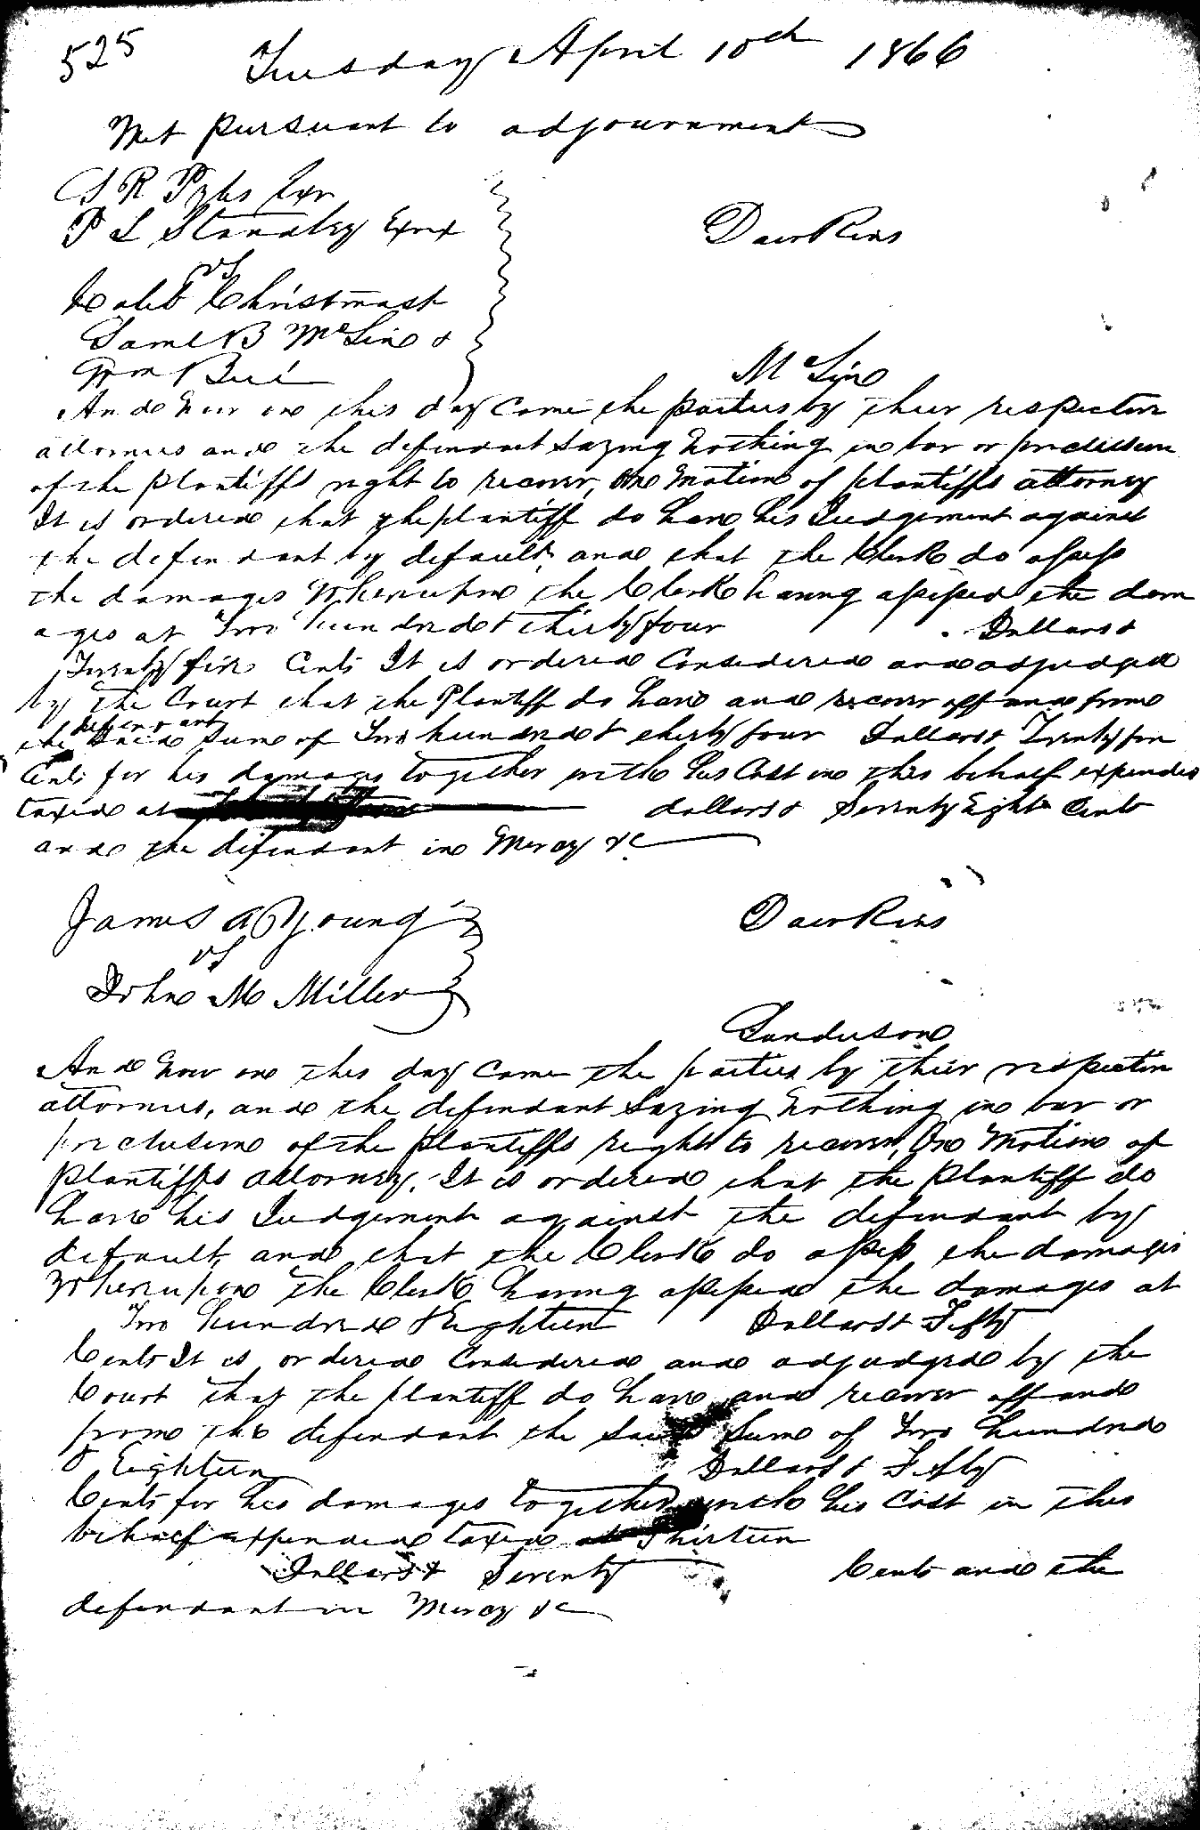 525
Tuesday April 10th 1866
Met pursuant to adjournment
S R Pyles Exr
P L Standley Exrx
vs
Caleb Christmast
Saml B McLine &
Wm
Dawkins
McLine
And now on this day came the parties by their respective
attornies and the defendant saying nothing in bar or preclusion
of the plantiffs right to recover, One motion of plantiffs attorney
It is ordered that the plantiff do have his Judgement against
the defendant by default, and that the Clerk do assess
the damages Whereupon the Clerk having assessed the dam
ages at Two hundred & thirty four Dollars &
Twenty five Cents It is ordered Considered and adjudged
by the Court that the Plantiff do have and recover off and from
the defendant Said Sum of Two hundred & thirty four Dollars & Twenty five
Cents for his damages together with his Cost in this behalf expended
taxed at dollars & Seventy Eight Cents
and the defendant in Mercy &c
James A Young
vs
John M Miller
Dawkins
Sanderson
And now on this day came the parties by their respective
attornies, and the defendant saying nothing in bar or
preclusion of the plantiffs right to recover, One Motion of
plantiffs attorney. It is ordered that the plantiff do
have his Judgement against the defendant by
default, and that the Clerk do assess the damages
Whereupon the Clerk having assessed the damages at
Two hundred & Eighteen Dollars & Fifty
Cents It is ordered Considered and adjudged by the
Court that the plantiff do have and recover off and
from the defendant the Said Sum of Two hundred
& Eighteen Dollars & Fifty
Cents for his damages together with his Cost in this
behalf expended taxed at Thirteen
Dollars & Seventy Cents and the
defendant in Mercy &c